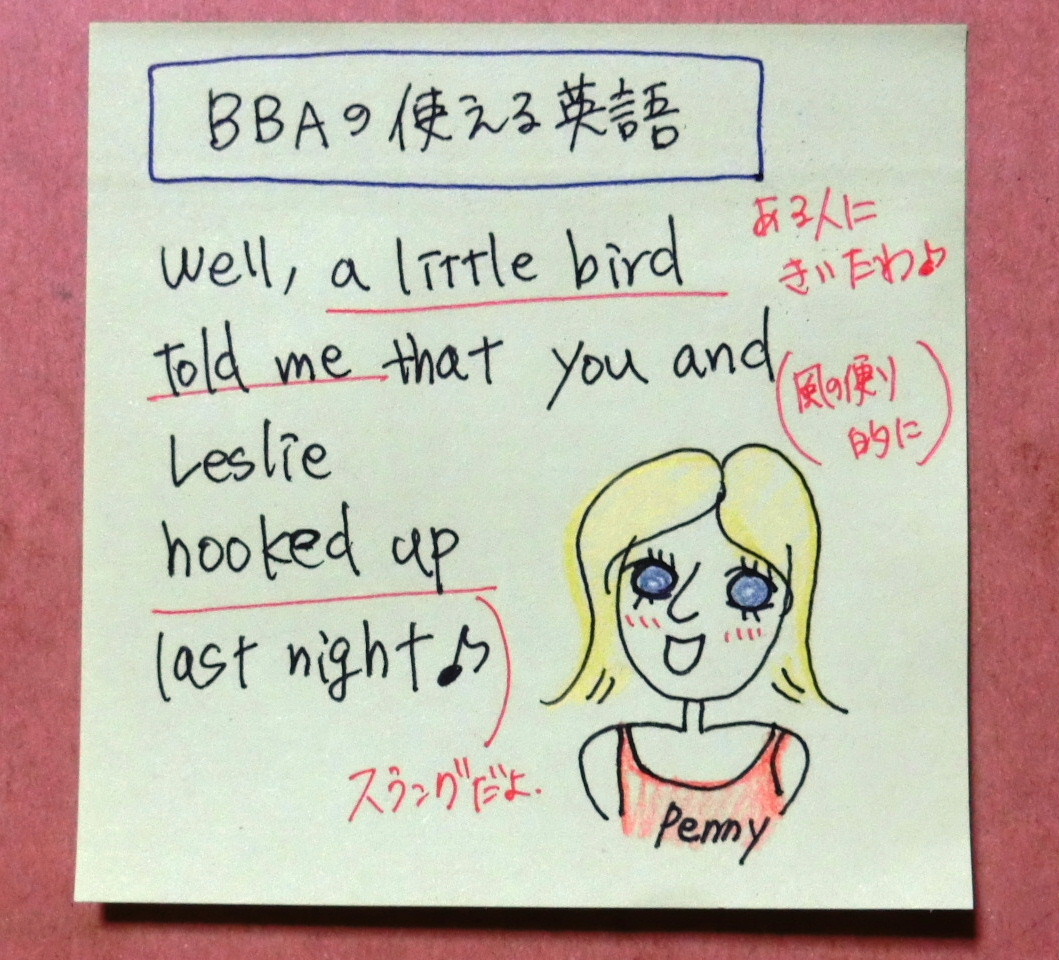 BBAの使える英語
Well, a little bird
ある人に
きいたわ♪
told me that you and
(風の便り
的に)
Leslie
hooked up
last night♪
スラングだよ.
Penny